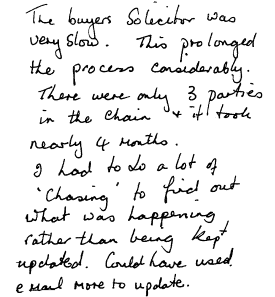 The buyers Solicitor was
very slow. This prolonged
the process considerably.
There were only 3 parties
in the chain & it took
nearly 4 months.
I had to do a lot of
'Chasing' to find out
what was happening
rather than being kept
updated. Could have used
email more to update.